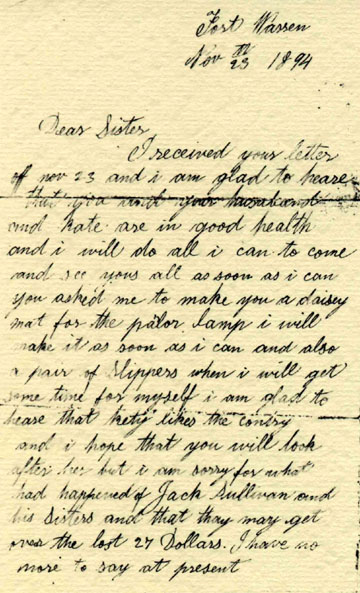 Fort Warren
Nov 23 th 1894
Dear Sister
I received your letter
off nov 23 and i am glad to heare
that you and your husband
and Kate are in good health
and i will do all i can to come
and see yous all as soon as i can
you asked me to make you a daisey
mat for the palor lamp i will
make it as soon as i can and also
a pair of Slippers when i will get
some time for myself i am glad to
hease that Kety likes the contry
and i hope that you will look
after her but i am sorry for what
had happened of Jack Sullivan and
his Sisters and that thay may get
over the lost 27 Dollars. I have no
more to say at present